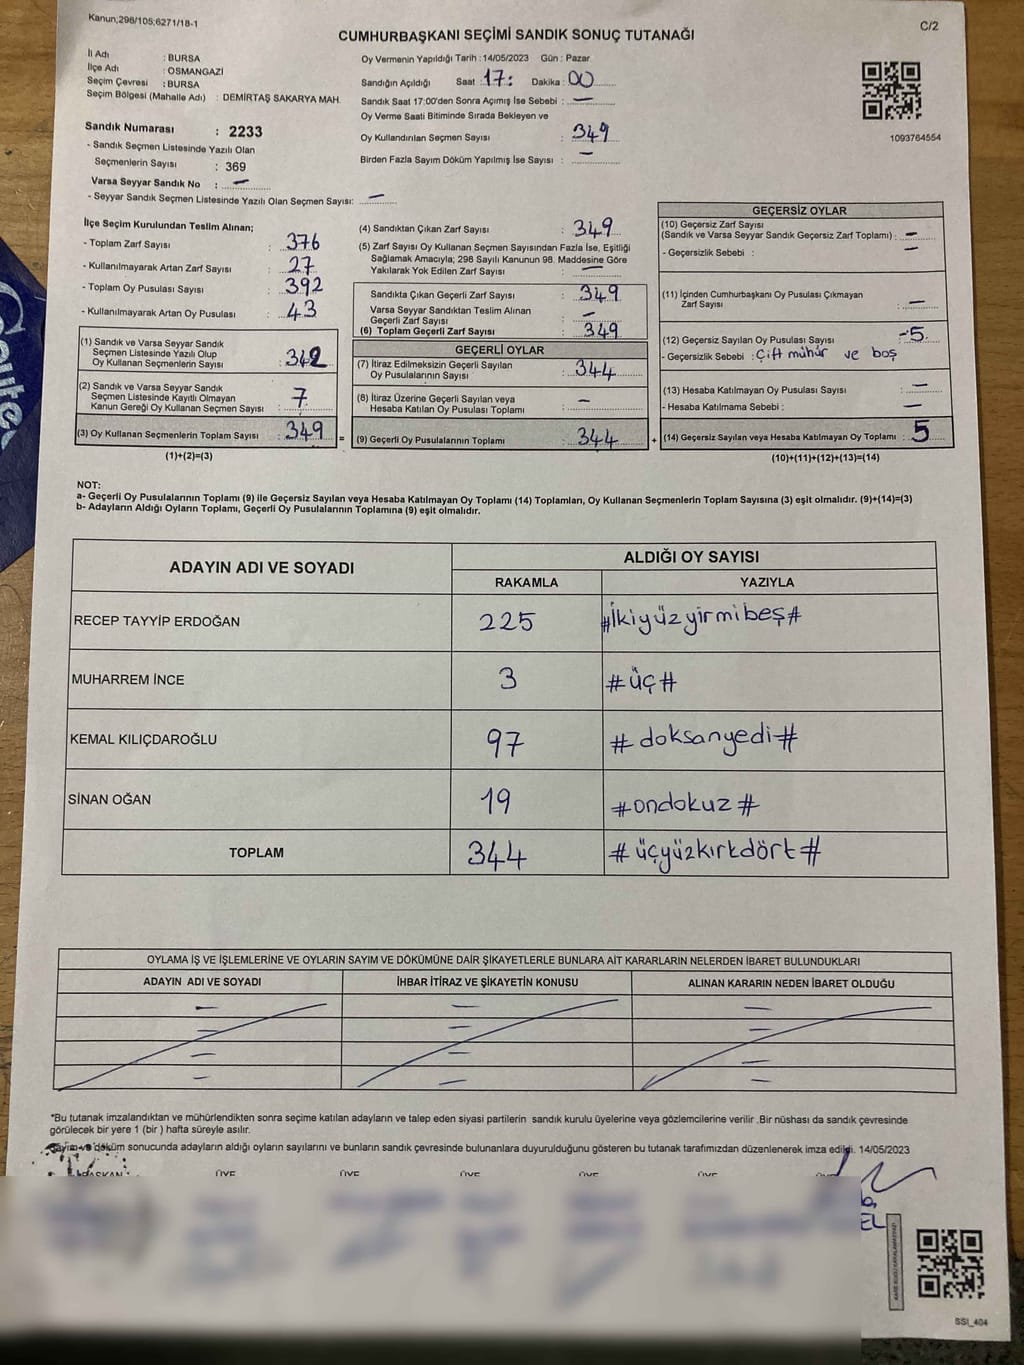 Kanun;298/105;6271/18-1
C/2
CUMHURBAŞKANI SEÇİMİ SANDIK SONUÇ TUTANAĞI
İl Adı : BURSA
İlçe Adı : OSMANGAZİ
Seçim Çevresi : BURSA
Seçim Bölgesi (Mahalle Adı) : DEMİRTAŞ SAKARYA MAH.
Sandık Numarası : 2233
- Sandık Seçmen Listesinde Yazılı Olan
Seçmenlerin Sayısı : 369
Varsa Seyyar Sandık No : —
- Seyyar Sandık Seçmen Listesinde Yazılı Olan Seçmen Sayısı: —
Oy Vermenin Yapıldığı Tarih : 14/05/2023 Gün : Pazar
Sandığın Açıldığı Saat : 17: Dakika : 00
Sandık Saat 17:00'den Sonra Açımış İse Sebebi : —
Oy Verme Saati Bitiminde Sırada Bekleyen ve
Oy Kullandırılan Seçmen Sayısı : 349
Birden Fazla Sayım Döküm Yapılmış İse Sayısı : —
1093764554
İlçe Seçim Kurulundan Teslim Alınan;
- Toplam Zarf Sayısı : 376
- Kullanılmayarak Artan Zarf Sayısı : 27
- Toplam Oy Pusulası Sayısı : 392
- Kullanılmayarak Artan Oy Pusulası : 43
(1) Sandık ve Varsa Seyyar Sandık
Seçmen Listesinde Yazılı Olup
Oy Kullanan Seçmenlerin Sayısı : 342
(2) Sandık ve Varsa Seyyar Sandık
Seçmen Listesinde Kayıtlı Olmayan
Kanun Gereği Oy Kullanan Seçmen Sayısı : 7
(3) Oy Kullanan Seçmenlerin Toplam Sayısı : 349
(1)+(2)=(3)
(4) Sandıktan Çıkan Zarf Sayısı : 349
(5) Zarf Sayısı Oy Kullanan Seçmen Sayısından Fazla İse, Eşitliği
Sağlamak Amacıyla; 298 Sayılı Kanunun 98. Maddesine Göre
Yakılarak Yok Edilen Zarf Sayısı : —
Sandıkta Çıkan Geçerli Zarf Sayısı : 349
Varsa Seyyar Sandıktan Teslim Alınan
Geçerli Zarf Sayısı : —
(6) Toplam Geçerli Zarf Sayısı : 349
GEÇERLİ OYLAR
(7) İtiraz Edilmeksizin Geçerli Sayılan
Oy Pusulalarının Sayısı : 344
(8) İtiraz Üzerine Geçerli Sayılan veya
Hesaba Katılan Oy Pusulası Toplamı : —
= (9) Geçerli Oy Pusulalarının Toplamı : 344
GEÇERSİZ OYLAR
(10) Geçersiz Zarf Sayısı
(Sandık ve Varsa Seyyar Sandık Geçersiz Zarf Toplamı) : —
- Geçersizlik Sebebi : —
(11) İçinden Cumhurbaşkanı Oy Pusulası Çıkmayan
Zarf Sayısı : —
(12) Geçersiz Sayılan Oy Pusulası Sayısı : 5
- Geçersizlik Sebebi : Çift mühür ve boş
(13) Hesaba Katılmayan Oy Pusulası Sayısı : —
- Hesaba Katılmama Sebebi : —
+ (14) Geçersiz Sayılan veya Hesaba Katılmayan Oy Toplamı : 5
(10)+(11)+(12)+(13)=(14)
NOT:
a- Geçerli Oy Pusulalarının Toplamı (9) ile Geçersiz Sayılan veya Hesaba Katılmayan Oy Toplamı (14) Toplamları, Oy Kullanan Seçmenlerin Toplam Sayısına (3) eşit olmalıdır. (9)+(14)=(3)
b- Adayların Aldığı Oyların Toplamı, Geçerli Oy Pusulalarının Toplamına (9) eşit olmalıdır.
ADAYIN ADI VE SOYADI
ALDIĞI OY SAYISI
RAKAMLA YAZIYLA
RECEP TAYYİP ERDOĞAN 225 #İkiyüzyirmibeş#
MUHARREM İNCE 3 #üç#
KEMAL KILIÇDAROĞLU 97 #doksanyedi#
SİNAN OĞAN 19 #ondokuz#
TOPLAM 344 #üçyüzkırkdört#
OYLAMA İŞ VE İŞLEMLERİNE VE OYLARIN SAYIM VE DÖKÜMÜNE DAİR ŞİKAYETLERLE BUNLARA AİT KARARLARIN NELERDEN İBARET BULUNDUKLARI
ADAYIN ADI VE SOYADI İHBAR İTİRAZ VE ŞİKAYETİN KONUSU ALINAN KARARIN NEDEN İBARET OLDUĞU
— — —
— — —
— — —
— — —
*Bu tutanak imzalandıktan ve mühürlendikten sonra seçime katılan adayların ve talep eden siyasi partilerin sandık kurulu üyelerine veya gözlemcilerine verilir .Bir nüshası da sandık çevresinde
görülecek bir yere 1 (bir ) hafta süreyle asılır.
Sayım ve döküm sonucunda adayların aldığı oyların sayılarını ve bunların sandık çevresinde bulunanlara duyurulduğunu gösteren bu tutanak tarafımızdan düzenlenerek imza edildi. 14/05/2023
BAŞKAN ÜYE ÜYE ÜYE ÜYE ÜYE
SSI_404